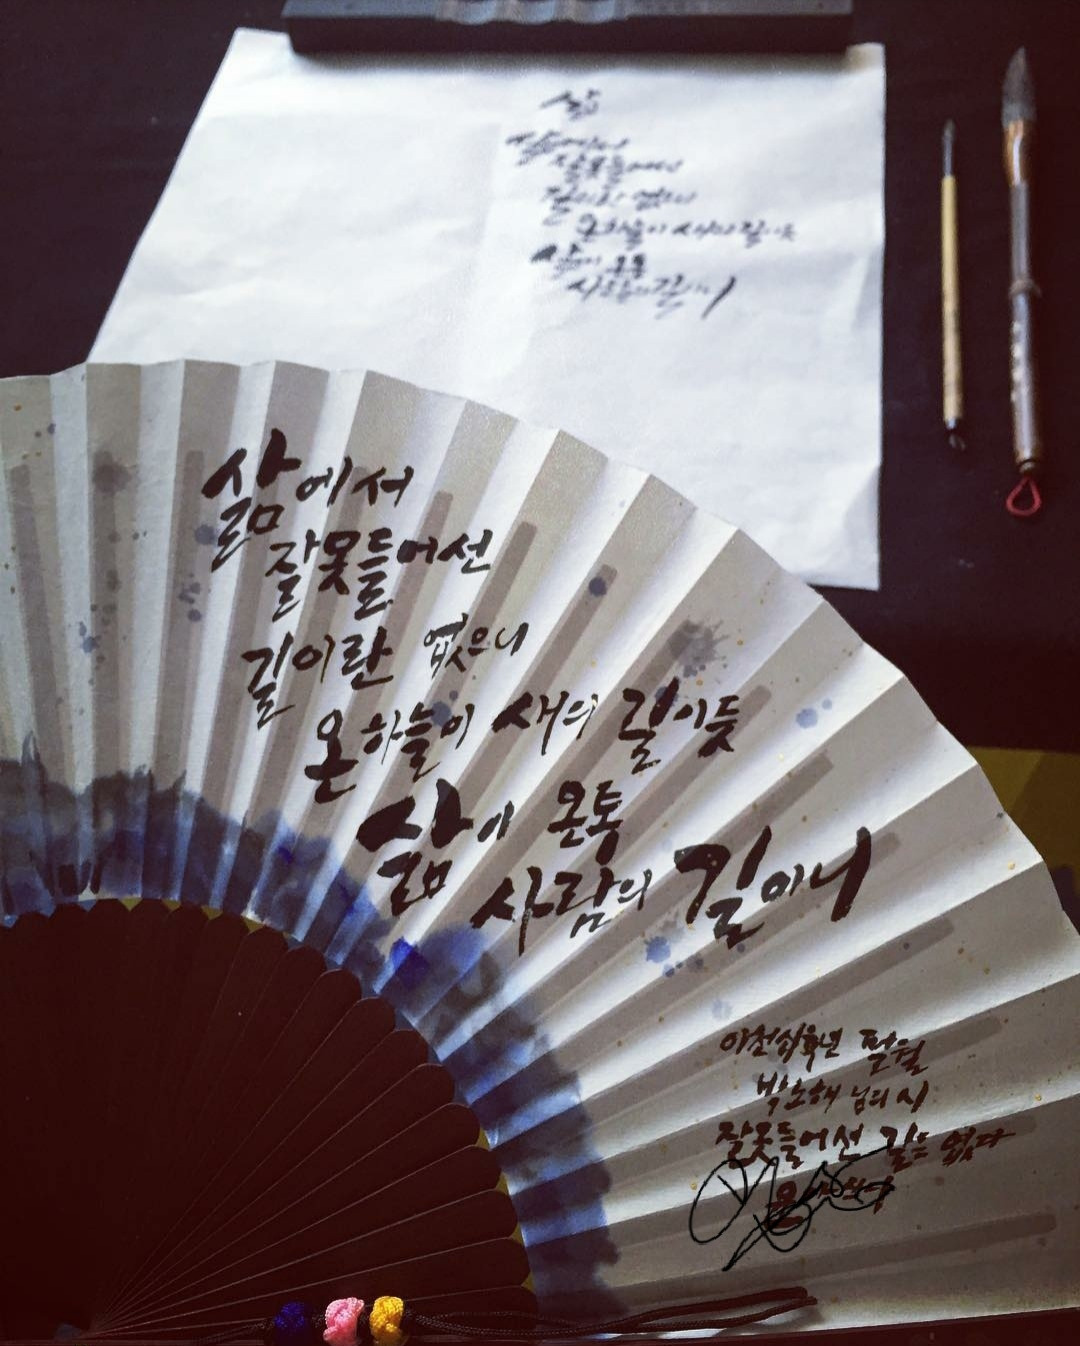 삶
삶에서
잘못들어선
길이란 없으니
온하늘이 새의 길이듯
삶이 온통
사람의 길이니
삶에서
잘못들어선
길이란 없으니
온하늘이 새의 길이듯
삶이 온통
사람의 길이니
이천십육년 팔월
박노해 님의 시
잘못들어선 길은 없다